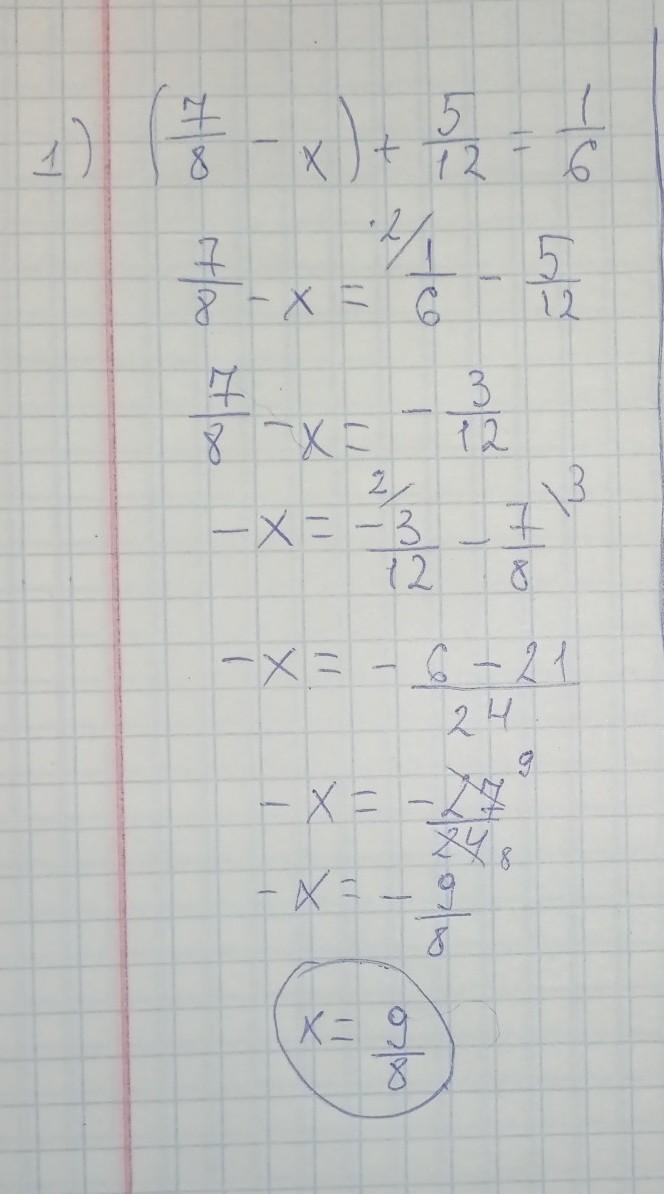 1) (7/8 - x) + 5/12 = 1/6
7/8 - x = ·2/ 1/6 - 5/12
7/8 - x = - 3/12
- x = 2/ -3/12 - 7/8 \3
- x = - 6 - 21/24
- x = - 27/24 9 8
- x = - 9/8
x = 9/8